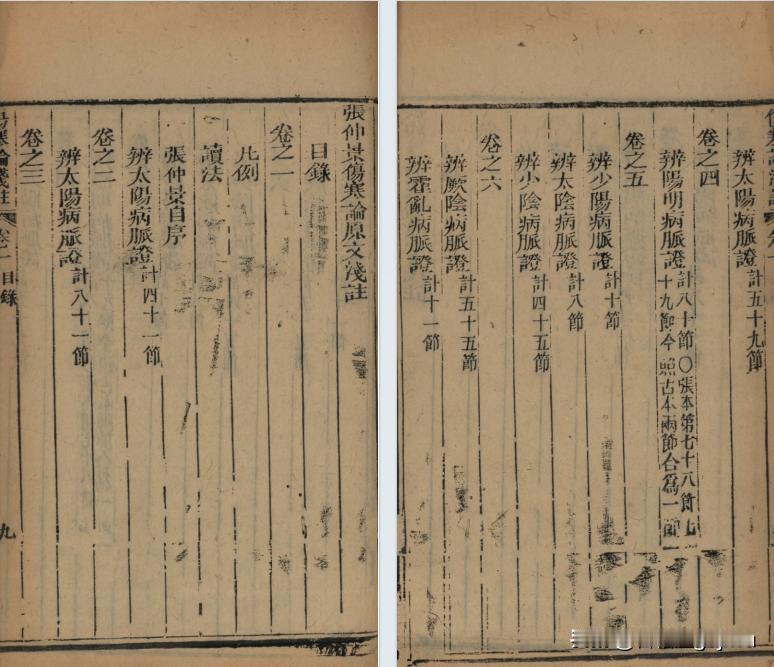 張仲景傷寒論原文淺註
目錄
卷之一
凡例
讀法
張仲景自序
辨太陽病脈證計四十一節
卷之二
辨太陽病脈證計八十一節
卷之三
傷寒論淺註 卷一 目錄 九
辨太陽病脈證計五十九節
卷之四
辨陽明病脈證計八十節〇張本第七十八節七十九節今照古本兩節合為一節
卷之五
辨少陽病脈證計十節
辨太陰病脈證計八節
辨少陰病脈證計四十五節
卷之六
辨厥陰病脈證計五十五節
辨霍亂病脈證計十一節